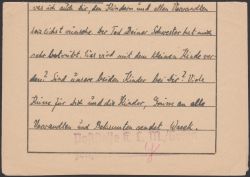 was ich auch dir, den Kindern und allen Verwandten
herzlichst wünsche. Der Tod Deiner Schwester hat mich
sehr betrübt. Was wird mit dem kleinen Kinde wer-
den? Sind unsere beiden Kinder bei dir? Viele
Küsse für dich und die Kinder, Grüsse an alle
Verwandten und Bekannten sendet